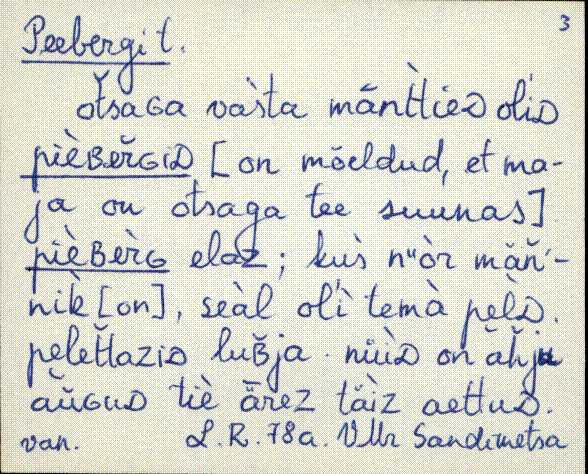 3
Peebergi t.
otsaGa vasta mäntƗieD oliD
pièBeřGiD [on mõeldud, et ma-
ja on otsaga tee suunas]
pièBèrG elaz; kus nᵘòr mäň́-
nik̀ [on], seàl olì temà pèlD.
peletƗaziD lušja. nüìD on ahju
aǔGuD tiè ärez täìz aettuD.
van. L.R. 78a. VMr Sandimetsa